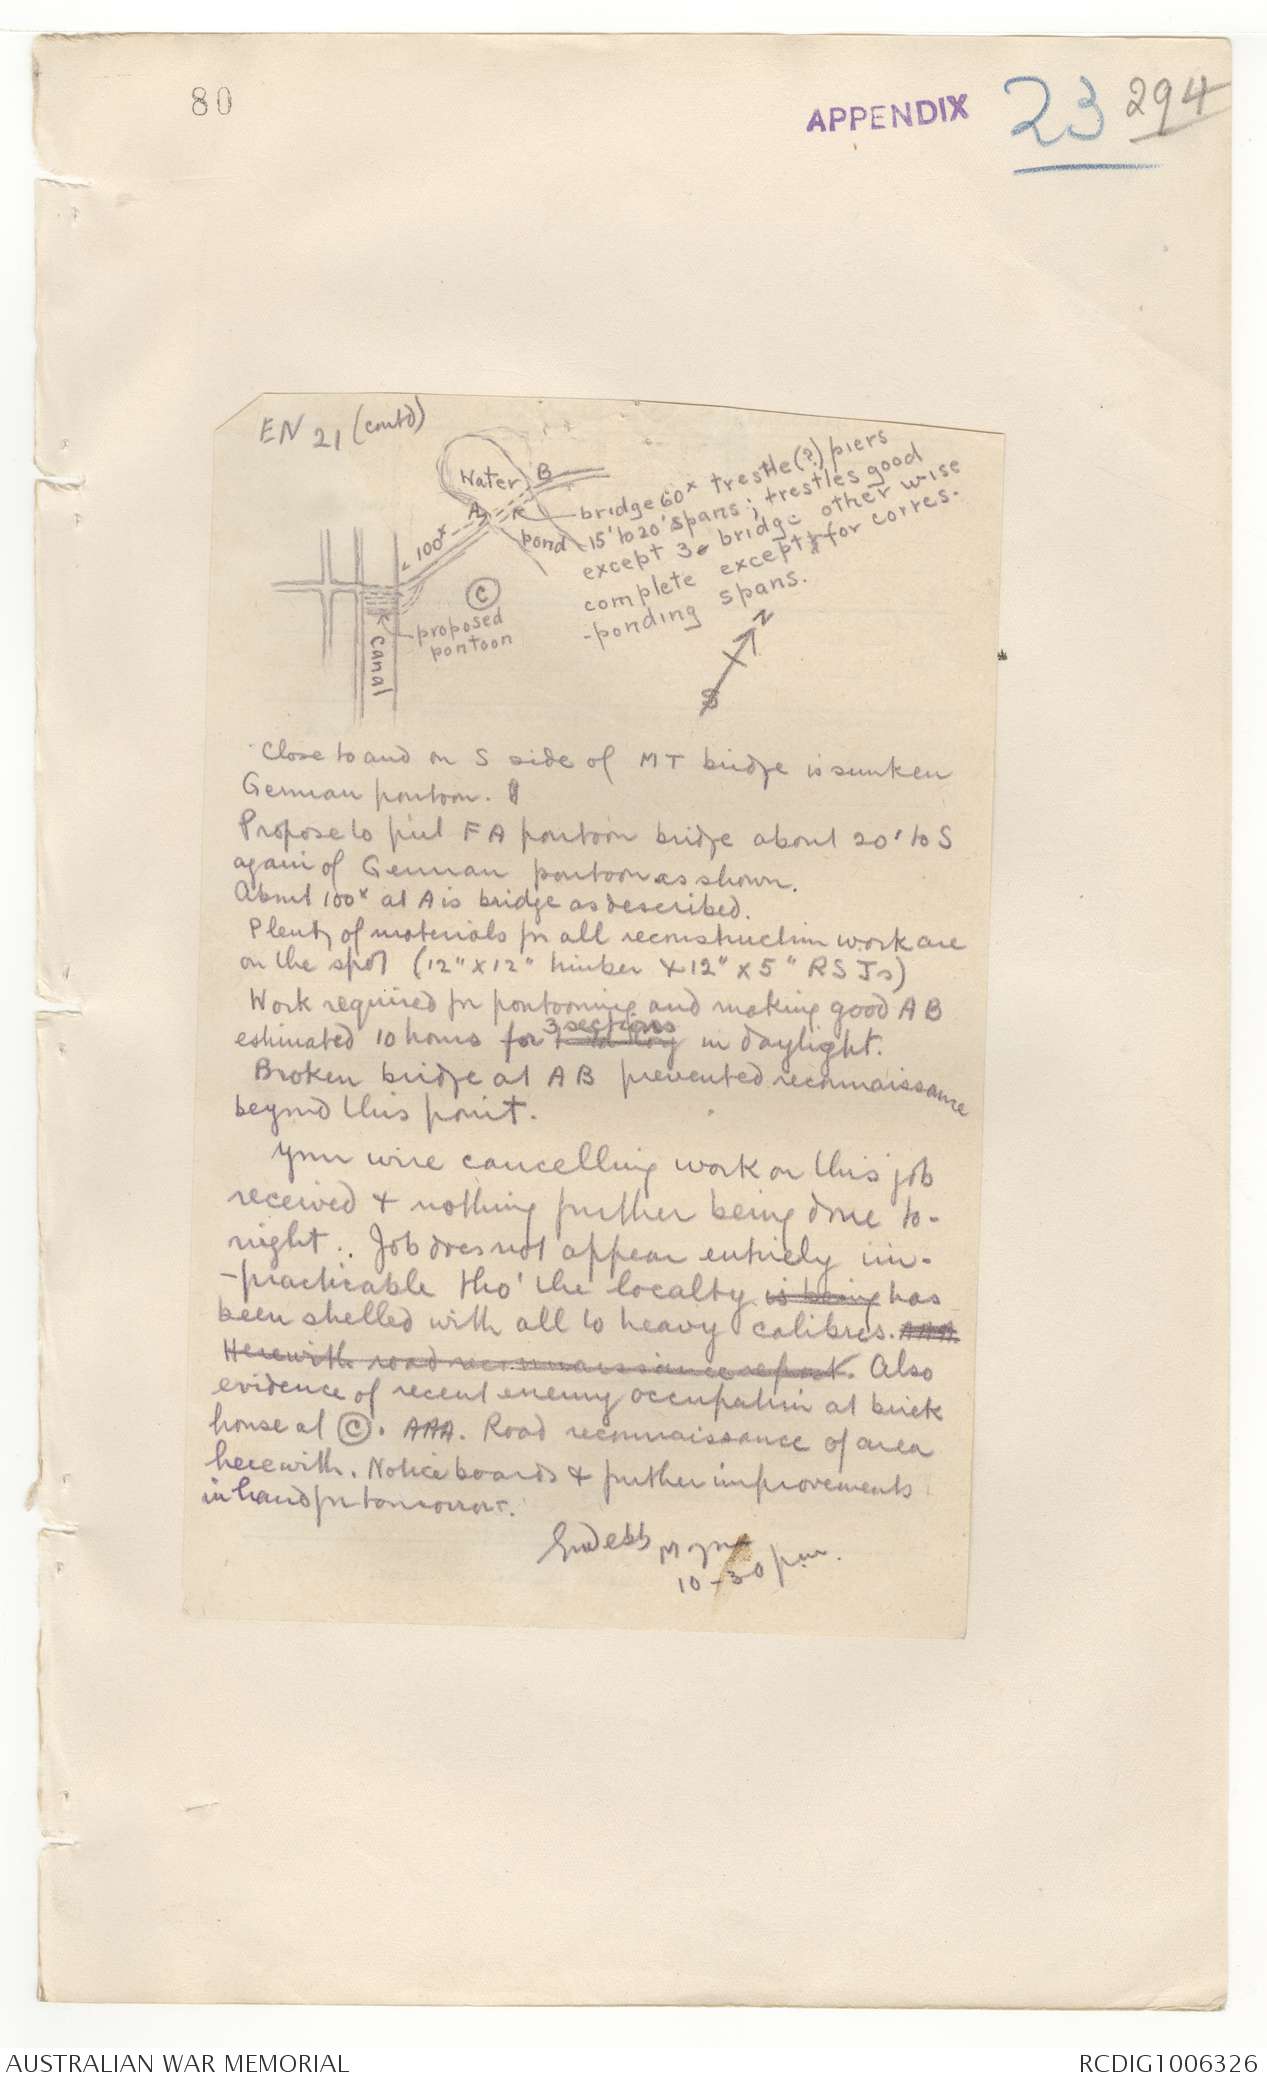 80
APPENDIX 23 294
EN 21 (contd)
Water B
A
100x
pond
bridge 60x trestle(?) piers
15' to 20' spans; trestles good
except 3 bridge other wise
complete except for corres-
-ponding spans.
C
proposed
pontoon
canal
N
S
Close to and on S side of MT bridge is sunken
German pontoon.
Propose to put FA pontoon bridge about 20' to S
again of German pontoon as shown.
About 100x at A is bridge as described.
Plenty of materials for all reconstruction work are
on the spot (12" x 12" timber & 12" x 5" RSJs)
Work required for pontooning and making good AB
3 sections
estimated 10 hours for in daylight.
Broken bridge at AB prevented reconnaissance
beyond this point.
Your wire cancelling work on this job
received & nothing further being done to-
night. Job does not appear entirely im-
-practicable tho' the localty is being has
been shelled with all to heavy calibres. AAA
Herewith road reconnaissance report. Also
evidence of recent enemy occupation at brick
house at C. AAA. Road reconnaissance of area
herewith. Notice boards & further improvements
in hand for tomorrow.
10-30 pm.
AUSTRALIAN WAR MEMORIAL
RCDIG1006326